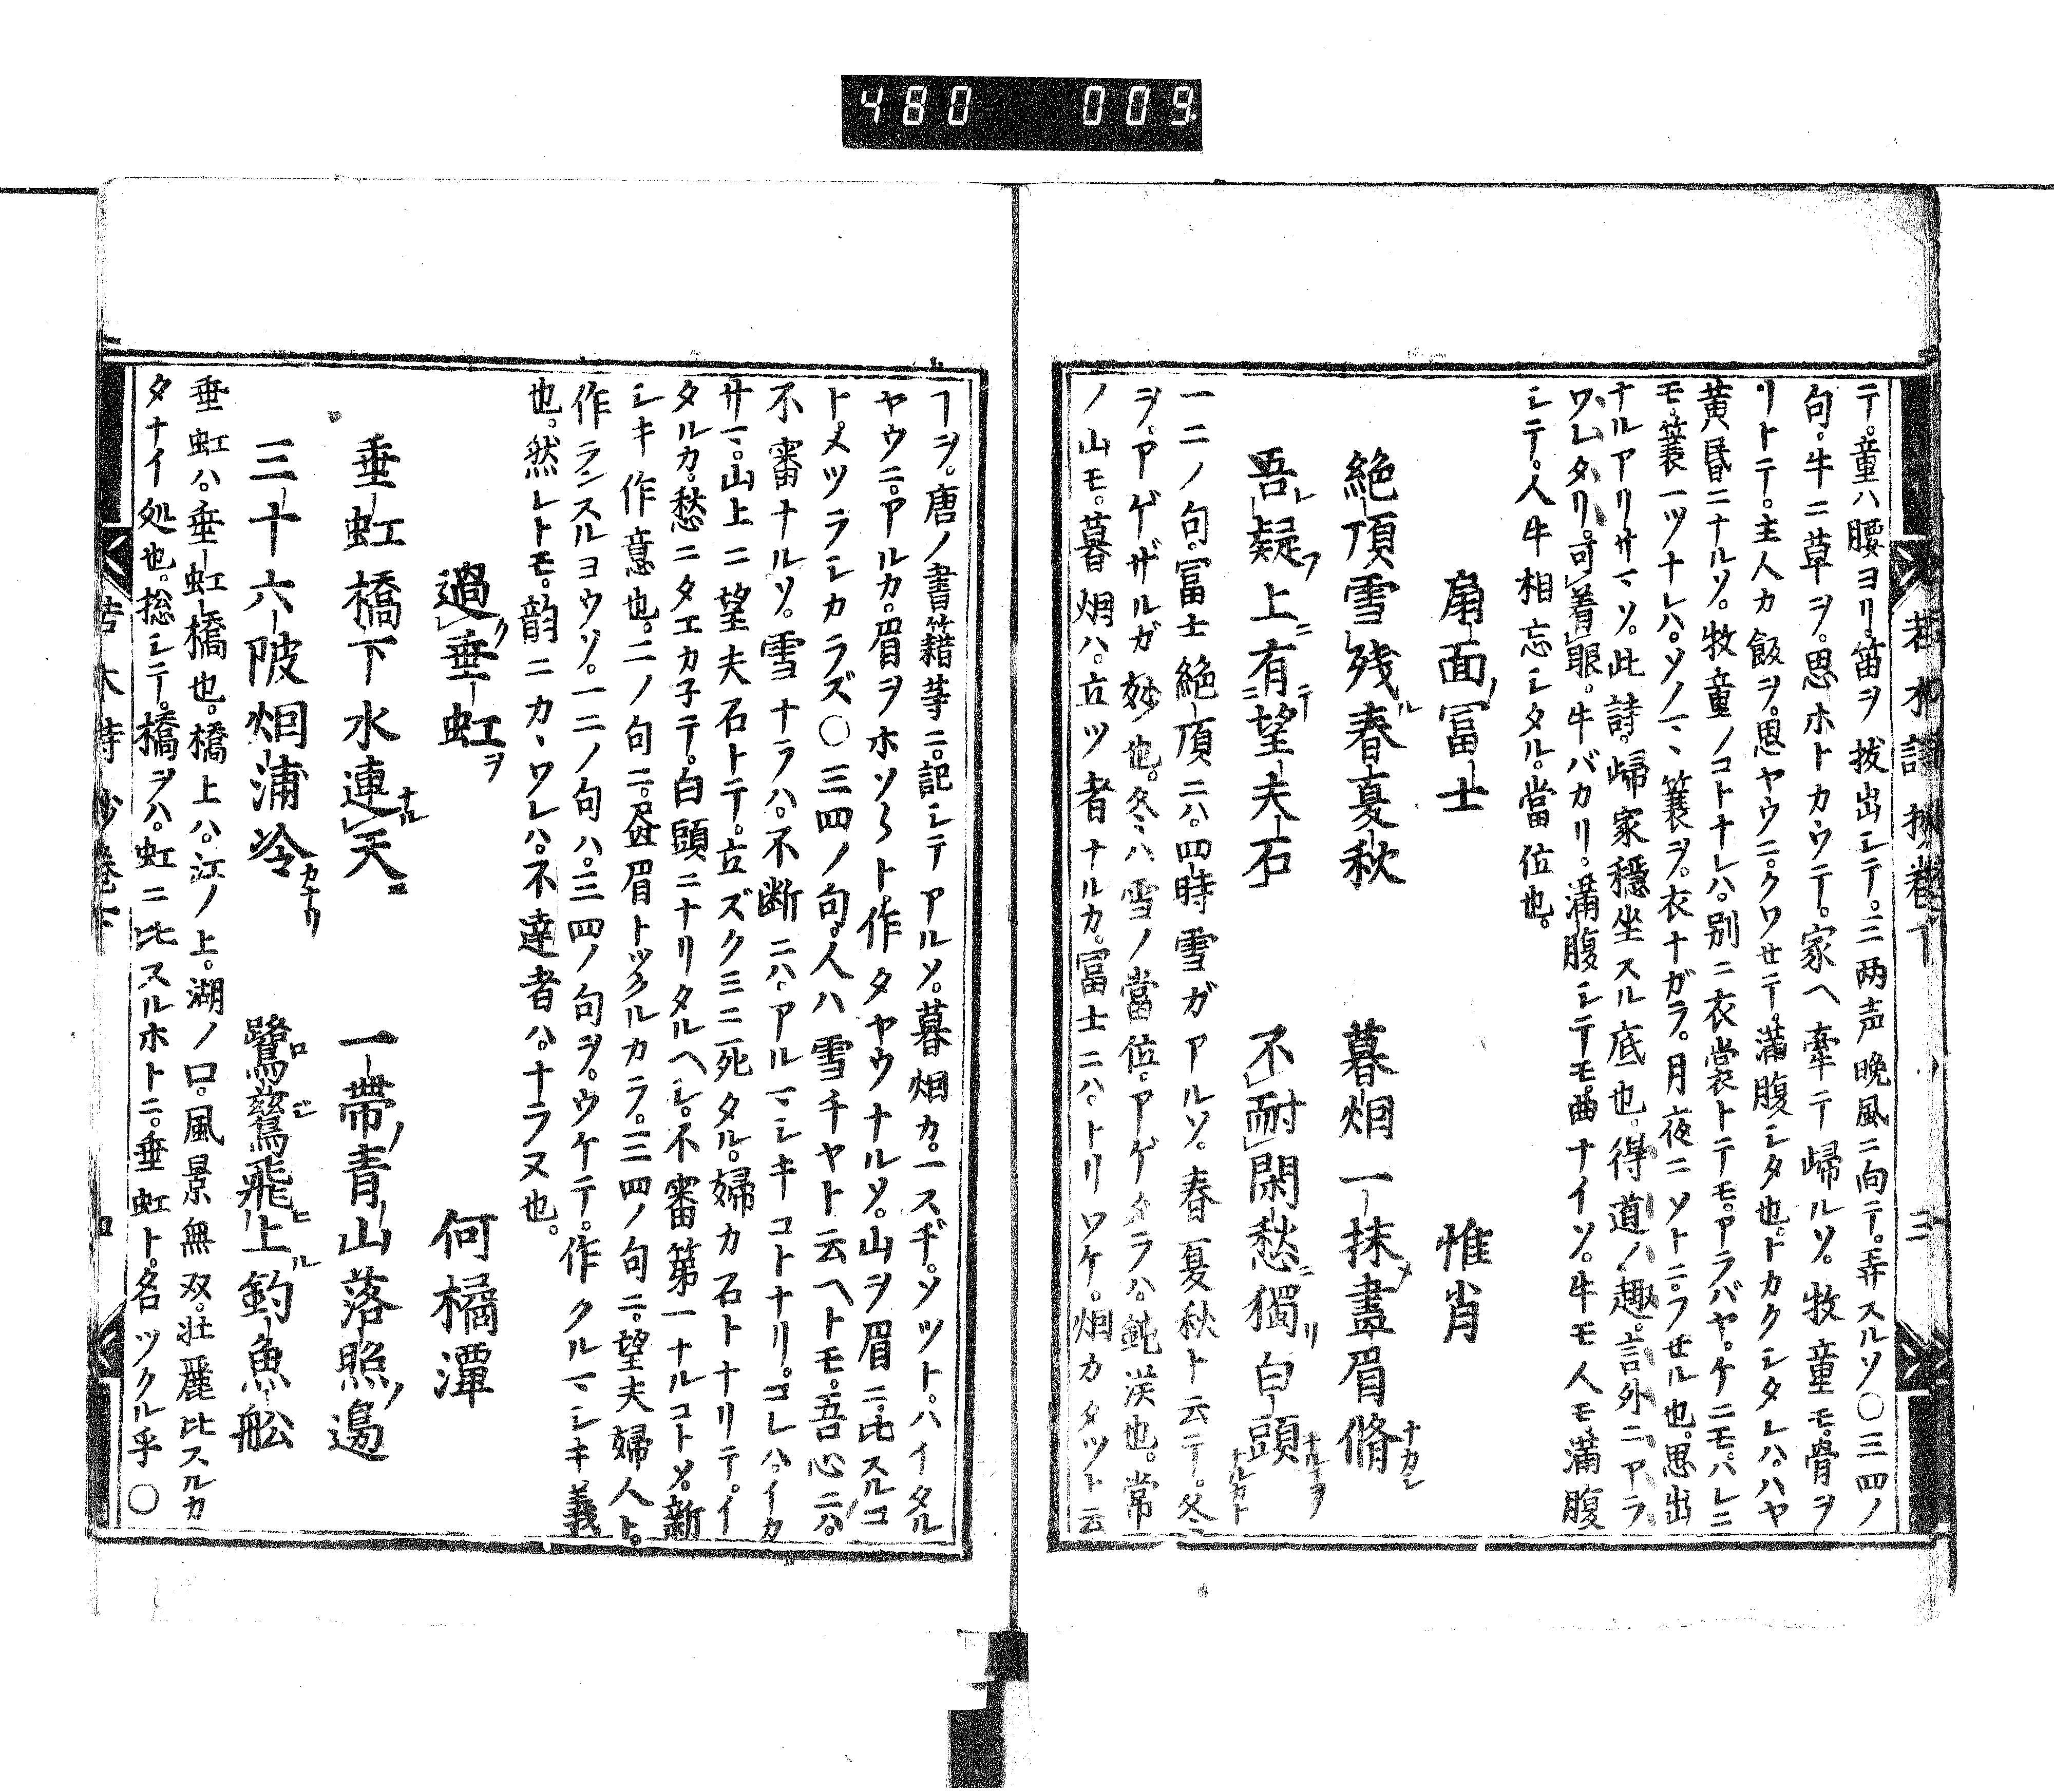 480 009
テ。童ハ腰ヨリ。笛ヲ抜出シテ。三両声晩風ニ向テ。弄スルソ〇三四ノ
句。牛ニ草ヲ。思ホトカウテ。家ヘ牽テ帰ルソ。牧童モ。骨ヲ
リトテ。主人カ飯ヲ。思ヤウニ。クワせテ。満腹シタ也。トカクシタレハ。ハヤ
黄昏ニナルソ。牧童ノコトナレハ。別ニ衣裳トテモ。アラバヤ。ケニモ。ハレニ
モ。簑一ツナレハ。ソノマヽ簑ヲ。衣ナガラ。月夜ニソトニ。フせル也。思出
ナルアリサマソ。此詩。帰家穏坐スル底也。得道ノ趣。言外ニアラ
ワレタリ。可着眼。牛バカリ。満腹シテモ。曲ナイソ。牛モ人モ。満腹
シテ。人牛相忘シタル。當位也。
扇面冨士 惟肖
絶頂雪残春夏秋 暮烟一抹盡眉脩
吾疑上有望夫石 不耐閑愁獨白頭
一二ノ句。冨士絶頂ニハ。四時雪ガアルソ。春夏秋ト云テ。冬
ヲ。アゲザルガ妙也。冬ハ雪ノ當位。アゲタラハ。鈍漢也。常
ノ山モ。暮烟ハ。立ツ者ナルカ。冨士ニハ。トリワケ。烟カタツト云
ヿヲ。唐ノ書籍等ニ。記シテアルソ。暮烟カ。一スヂ。ソツト。ハイタル
ヤウニ。アルカ。眉ヲホソ〱ト作タヤウナルソ。山ヲ眉ニ。比スルコ
ト。メツラシカラズ〇三四ノ句。人ハ雪チヤト云ヘトモ。吾心ニハ。
不審ナルソ。雪ナラハ。不断ニハ。アルマシキコトナリ。コレハ。イカ
サマ。山上ニ望夫石トテ。立ズクミニ死タル。婦カ石トナリテ。イ
タルカ。愁ニタエカ子テ。白頭ニナリタルヘシ。不審第一ナルコトソ。新
シキ作意也。二ノ句ニ。盡眉トツクルカラ。三四ノ句ニ。望夫婦人ト。
作ランスルヨウソ。一二ノ句ハ。三四ノ句ヲ。ウケテ。作クルマシキ義
也。然レトモ。韵ニカヽワレハ。不達者ハ。ナラヌ也。
過垂虹 何橘潭
垂虹橋下水連天 一帶青山落照邉
三十六陂烟蒲冷 鷺鷥飛上釣魚舩
垂虹ハ。垂虹橋也。橋上ハ。江ノ上。湖ノ口。風景無双。壮麗比スルカ
タナイ処也。捴シテ。橋ヲハ。虹ニ比スルホトニ。垂虹ト。名ツクル乎〇